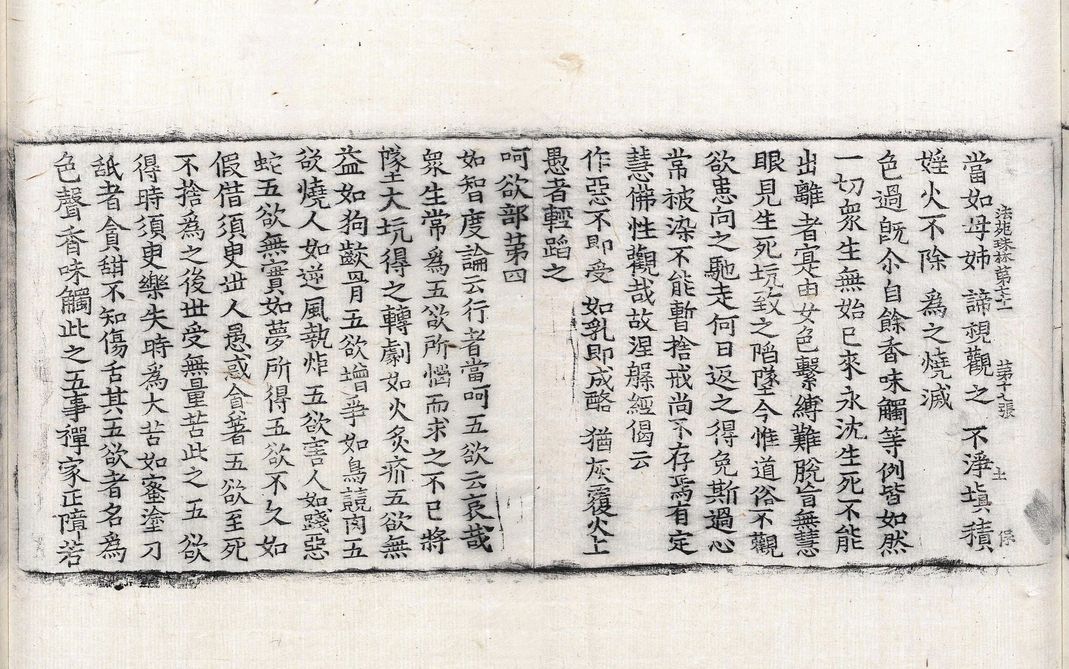 當如母姊 諦視觀之 不淨塡積
法苑珠林第七十一 第十七張 土 條
婬火不除 爲之燒滅
色過旣尒自餘香味觸等例皆如然
一切衆生無始已來永沈生死不能
出離者寔由女色繫縛難脫旨無慧
眼見生死坑致之陷墜今惟道俗不觀
欲患向之馳走何日返之得免斯過心
常被染不能暫捨戒尚不存焉有定
慧佛性觀哉故涅槃經偈云
作惡不即受 如乳即成酪 猶灰覆火上
愚者輕蹈之
呵欲部第四
如智度論云行者當呵五欲云哀哉
衆生常爲五欲所惱而求之不已將
墜大坑得之轉劇如火炙疥五欲無
益如狗齩骨五欲增爭如鳥競肉五
欲燒人如逆風執炬五欲害人如踐惡
蛇五欲無實如夢所得五欲不久如
假借須臾世人愚惑貪著五欲至死
不捨爲之後世受無量苦此之五欲
得時須臾樂失時爲大苦如蜜塗刀
舐者貪甜不知傷舌其五欲者名爲
色聲香味觸此之五事禪家正障若